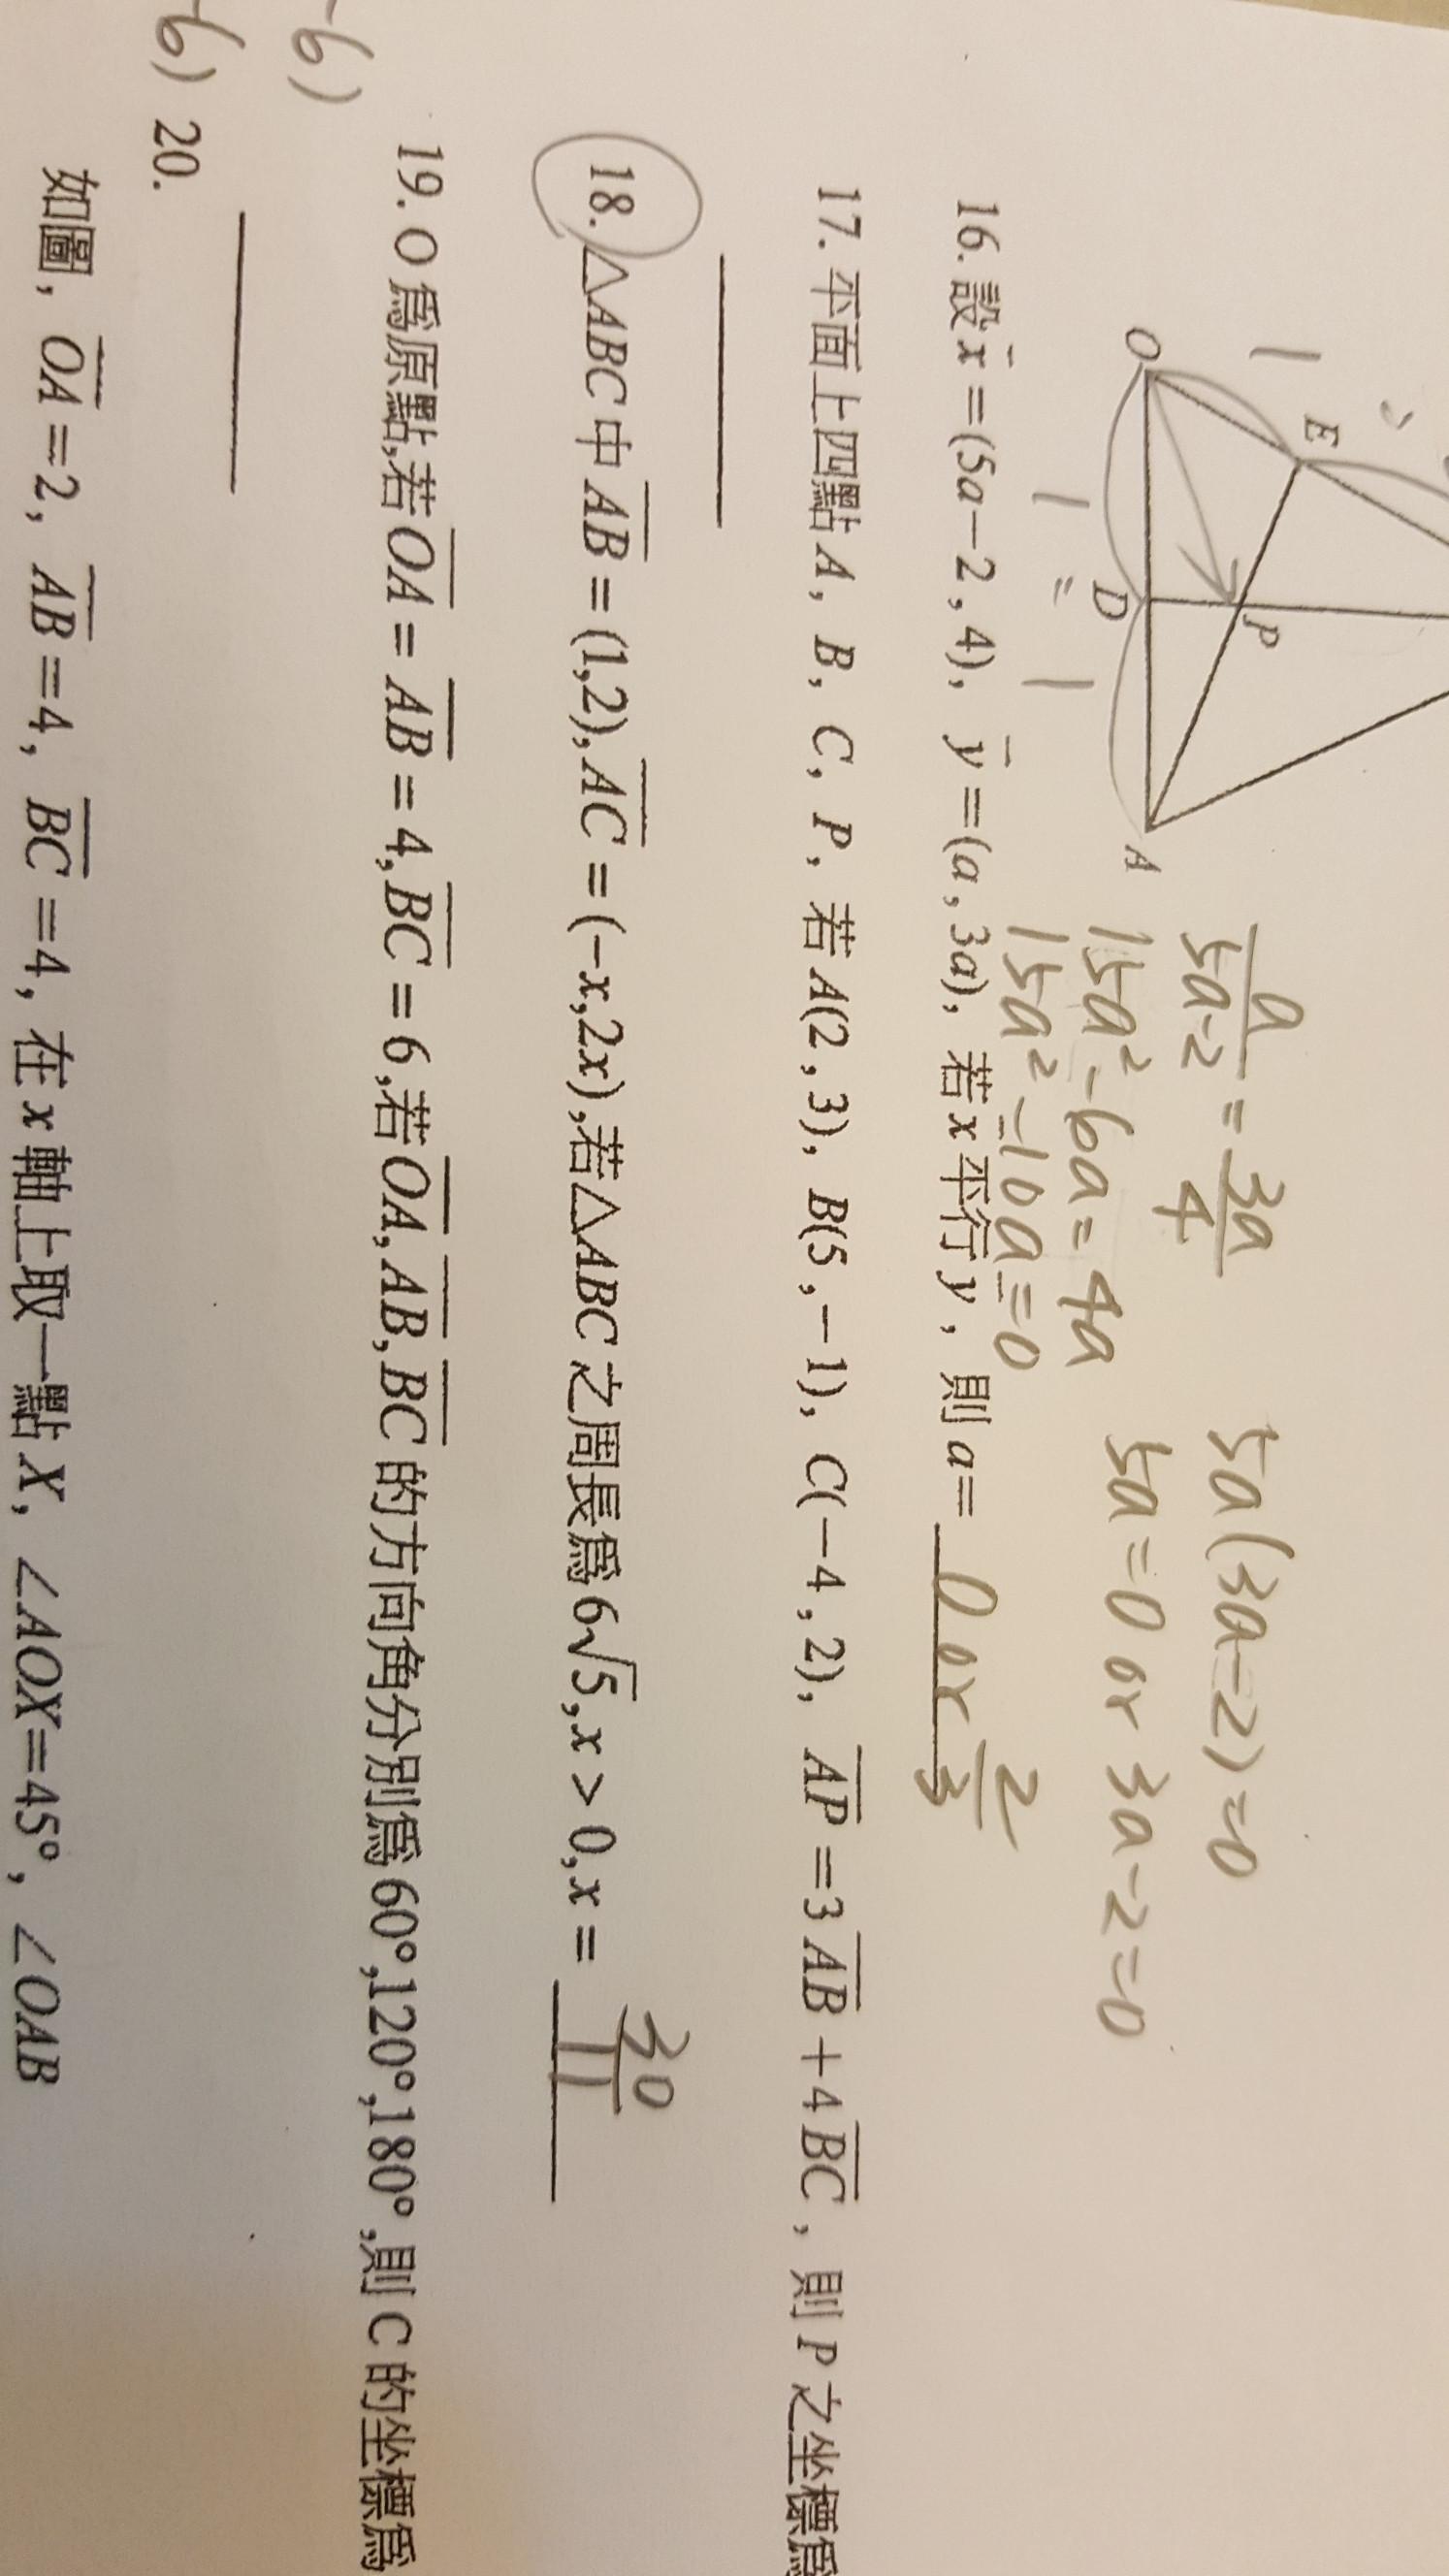 1
E
P
O
D
A
1 = 1
a/(5a-2) = 3a/4
15a² - 6a = 4a
15a² - 10a = 0
5a(3a-2)=0
5a=0 or 3a-2=0
16. 設x̄=(5a-2,4),ȳ=(a,3a),若x平行y,則a= 0 or 2/3
17. 平面上四點A,B,C,P,若A(2,3),B(5,-1),C(-4,2),A̅P̅=3A̅B̅+4B̅C̅,則P之坐標為
18. △ABC中A̅B̅=(1,2),A̅C̅=(-x,2x),若△ABC之周長為6√5,x>0,x= 30/11
-6)
19. O為原點,若O̅A̅=A̅B̅=4,B̅C̅=6,若O̅A̅,A̅B̅,B̅C̅的方向角分別為60°,120°,180°,則C的坐標為
-6) 20.
如圖,O̅A̅=2,A̅B̅=4,B̅C̅=4,在x軸上取一點X,∠AOX=45°,∠OAB